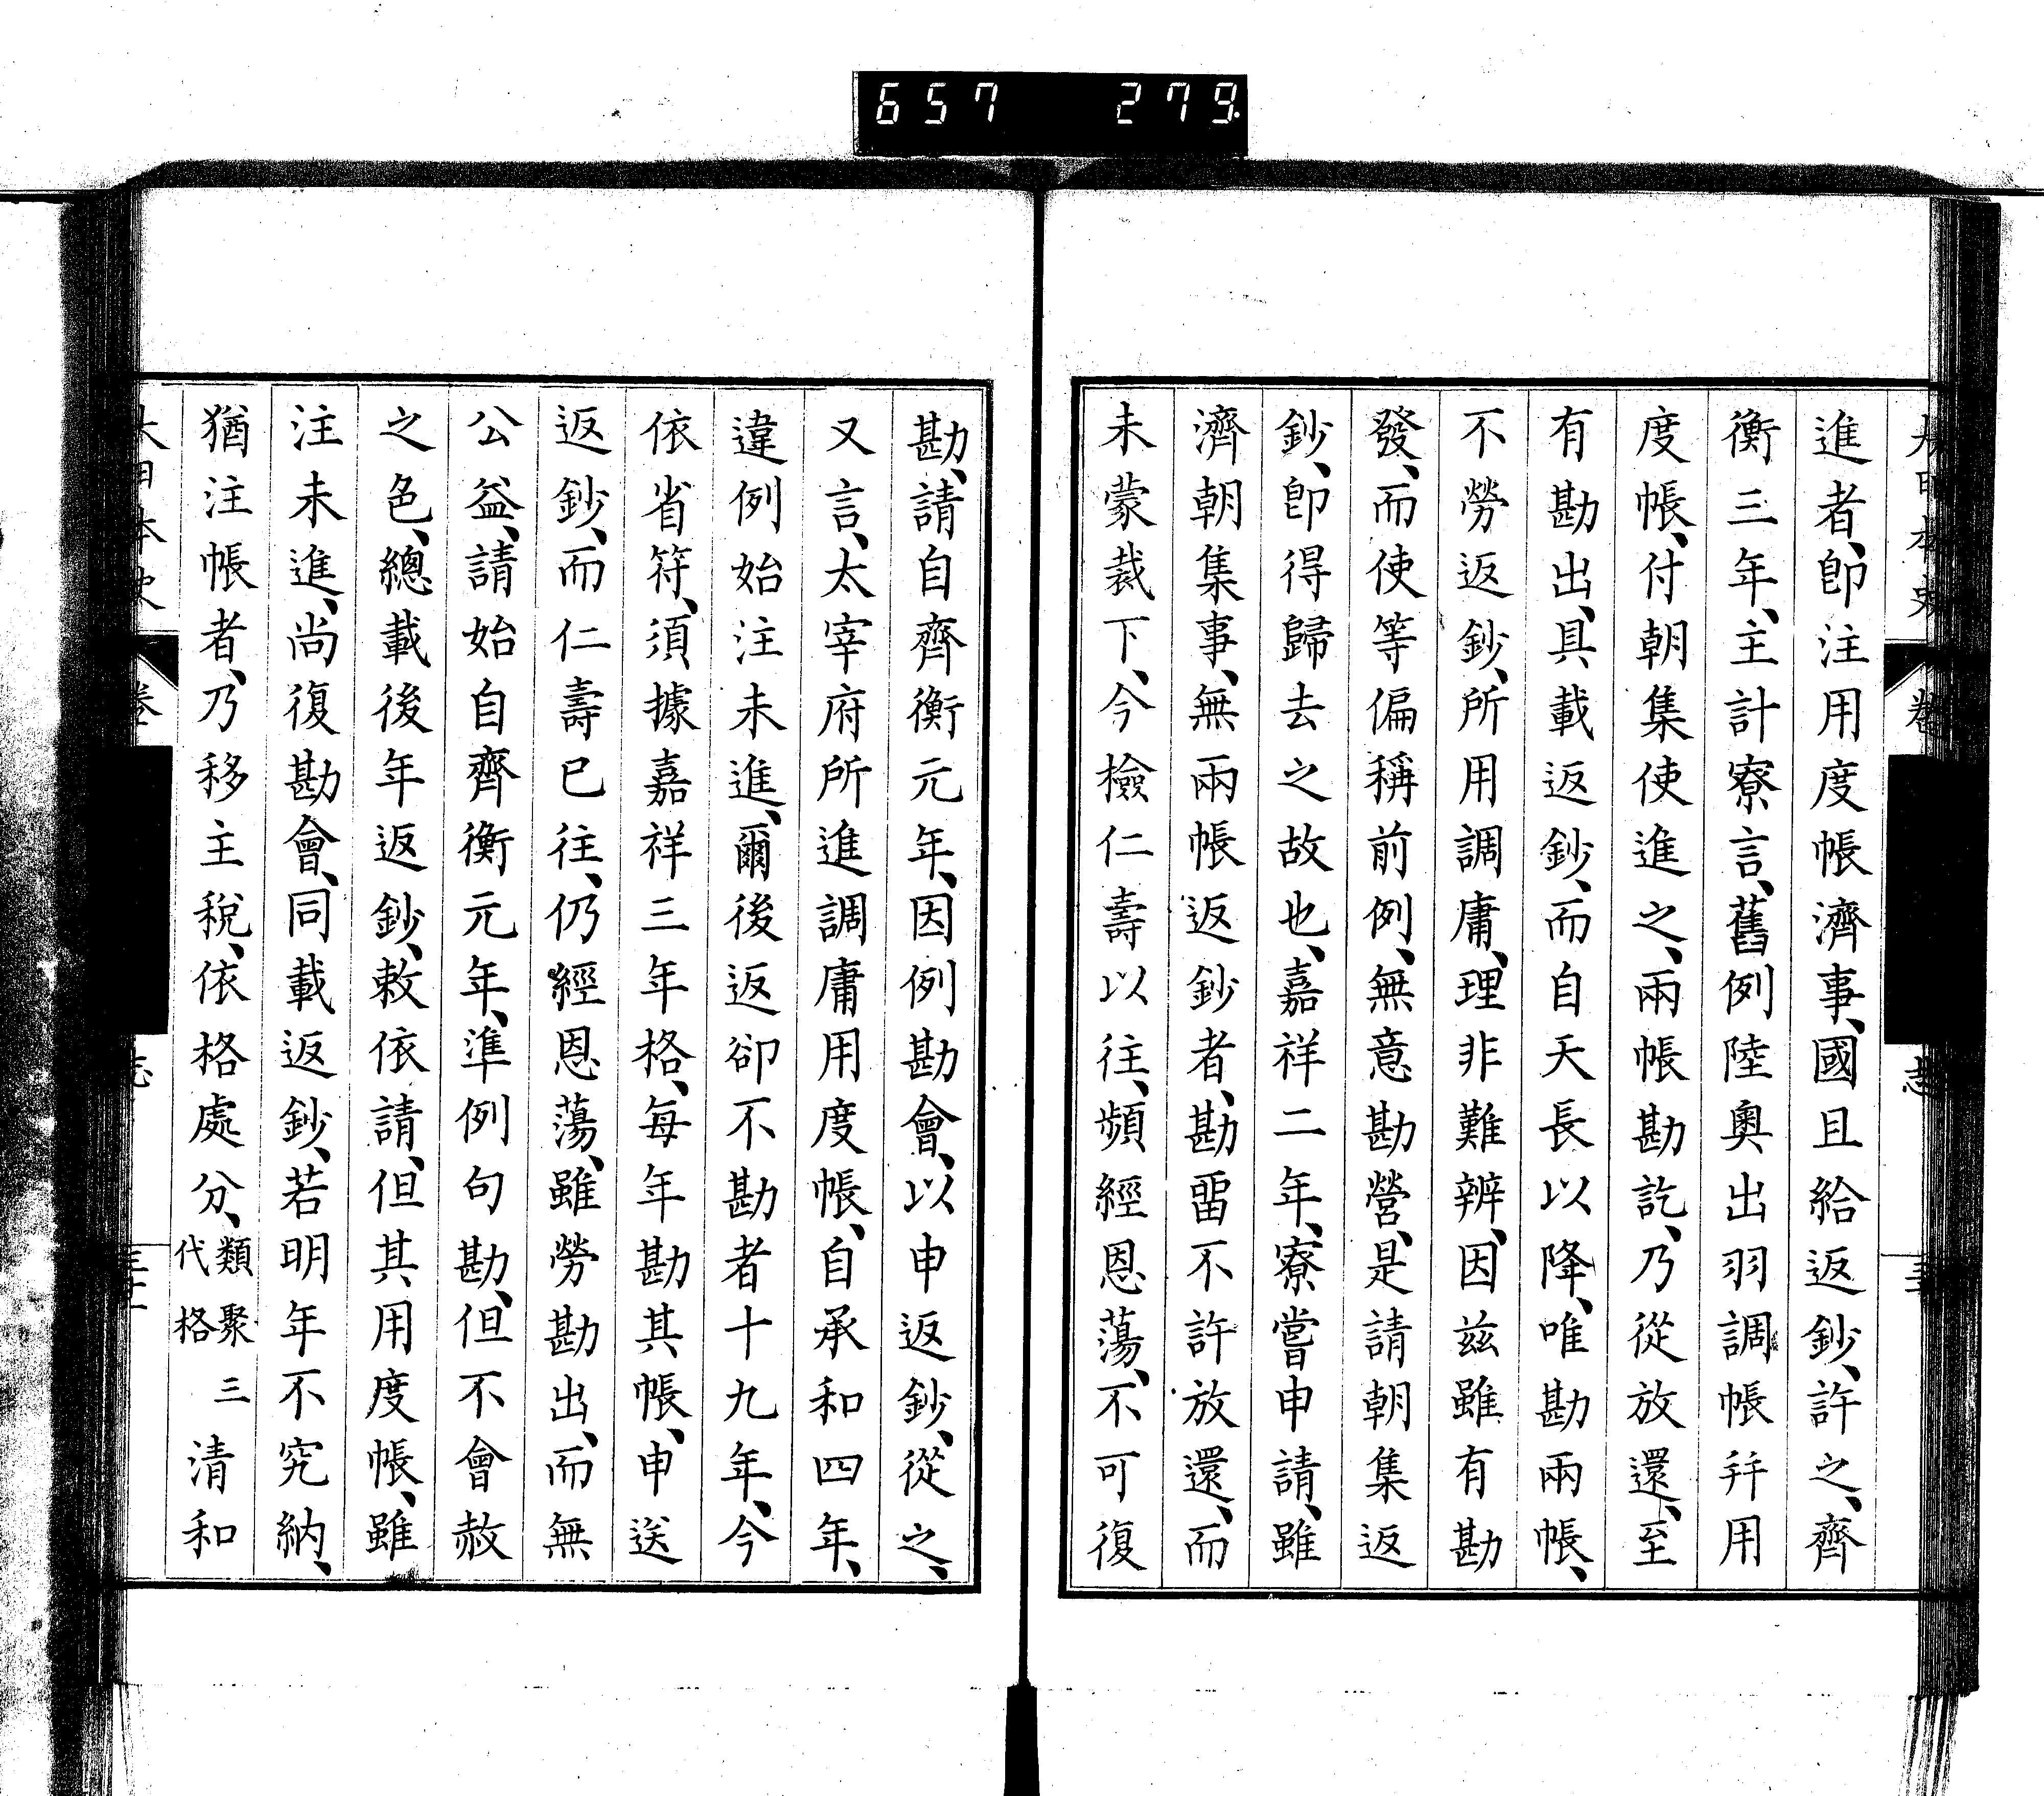 657 279
進者、卽注用度帳濟事、國且給返鈔、許之、齊
衡三年、主計寮言、舊例陸奧出羽調帳幷用
度帳、付朝集使進之、兩帳勘訖、乃從放還、至
有勘出、具載返鈔、而自天長以降、唯勘兩帳、
不勞返鈔、所用調庸、理非難辨、因茲雖有勘
發、而使等偏稱前例、無意勘營、是請朝集返
鈔、卽得歸去之故也、嘉祥二年、寮嘗申請、雖
濟朝集事、無兩帳返鈔者、勘畱不許放還、而
未蒙裁下、今檢仁壽以往、頻經恩蕩、不可復
勘、請自齊衡元年、因例勘會、以申返鈔、從之、
又言、太宰府所進調庸用度帳、自承和四年、
違例始注未進、爾後返卻不勘者十九年、今
依省符、須據嘉祥三年格、每年勘其帳、申送
返鈔、而仁壽已往、仍經恩蕩、雖勞勘出、而無
公益、請始自齊衡元年、準例句勘、但不會赦
之色、總載後年返鈔、敕依請、但其用度帳、雖
注未進、尚復勘會、同載返鈔、若明年不究納、
猶注帳者、乃移主稅、依格處分、類聚三代格 清和